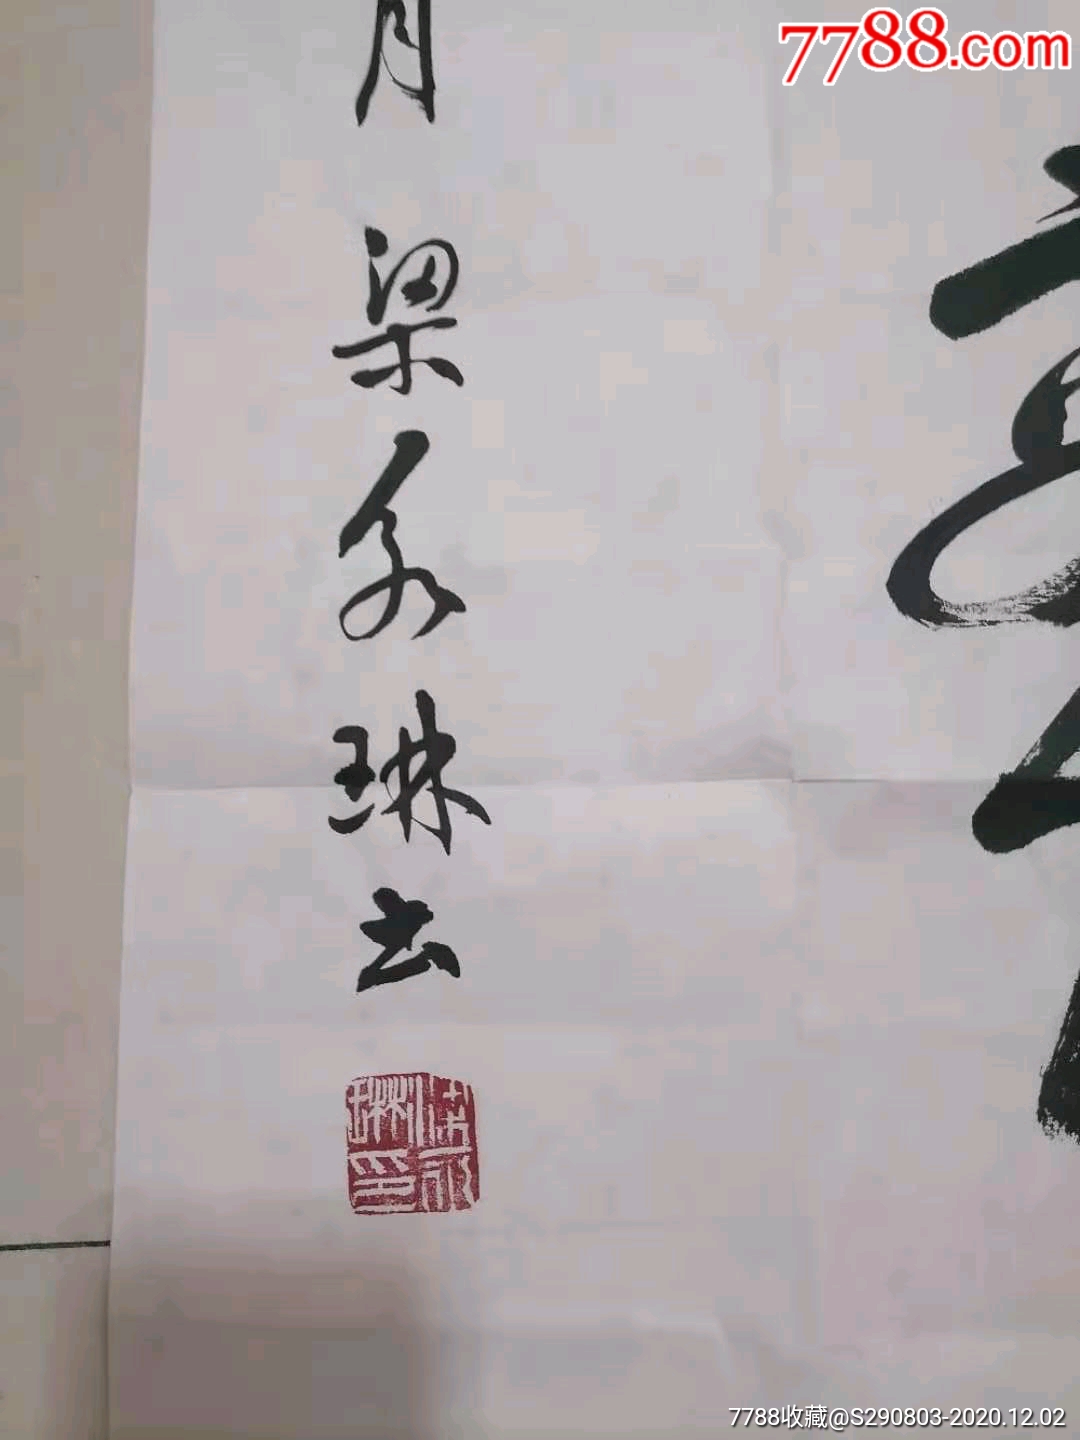 7788.com
月
梁永琳书
梁永琳印
7788收藏@S290803-2020.12.02